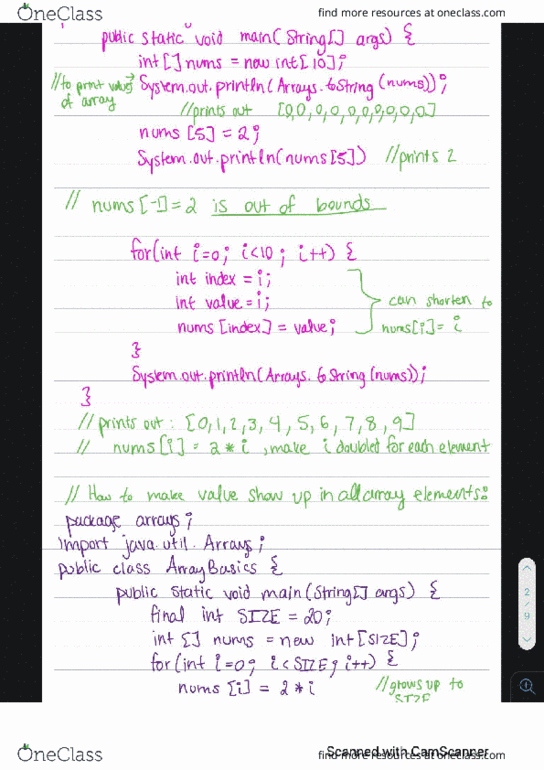 OneClass
find more resources at oneclass.com
public static void main(String[] args) {
int[] nums = new int[10];
//to print values of array
System.out.println(Arrays.toString(nums));
//prints out [0,0,0,0,0,0,0,0,0,0]
nums[5] = 2;
System.out.println(nums[5]) //prints 2
// nums[-1]=2 is out of bounds
for(int i=0; i<10; i++) {
int index = i;
int value = i;
nums[index] = value;
can shorten to
nums[i]= i
}
System.out.println(Arrays.toString(nums));
}
//prints out: [0,1,2,3,4,5,6,7,8,9]
// nums[i] = 2*i, make i doubled for each element
// How to make value show up in all array elements:
package arrays;
import java.util.Arrays;
public class ArrayBasics {
public static void main(String[] args) {
final int SIZE = 20;
int [] nums = new int[SIZE];
for(int i=0; i<SIZE; i++) {
nums[i] = 2*i
//grows up to
SIZE
2
/
9
Scanned with CamScanner
OneClass
find more resources at oneclass.com